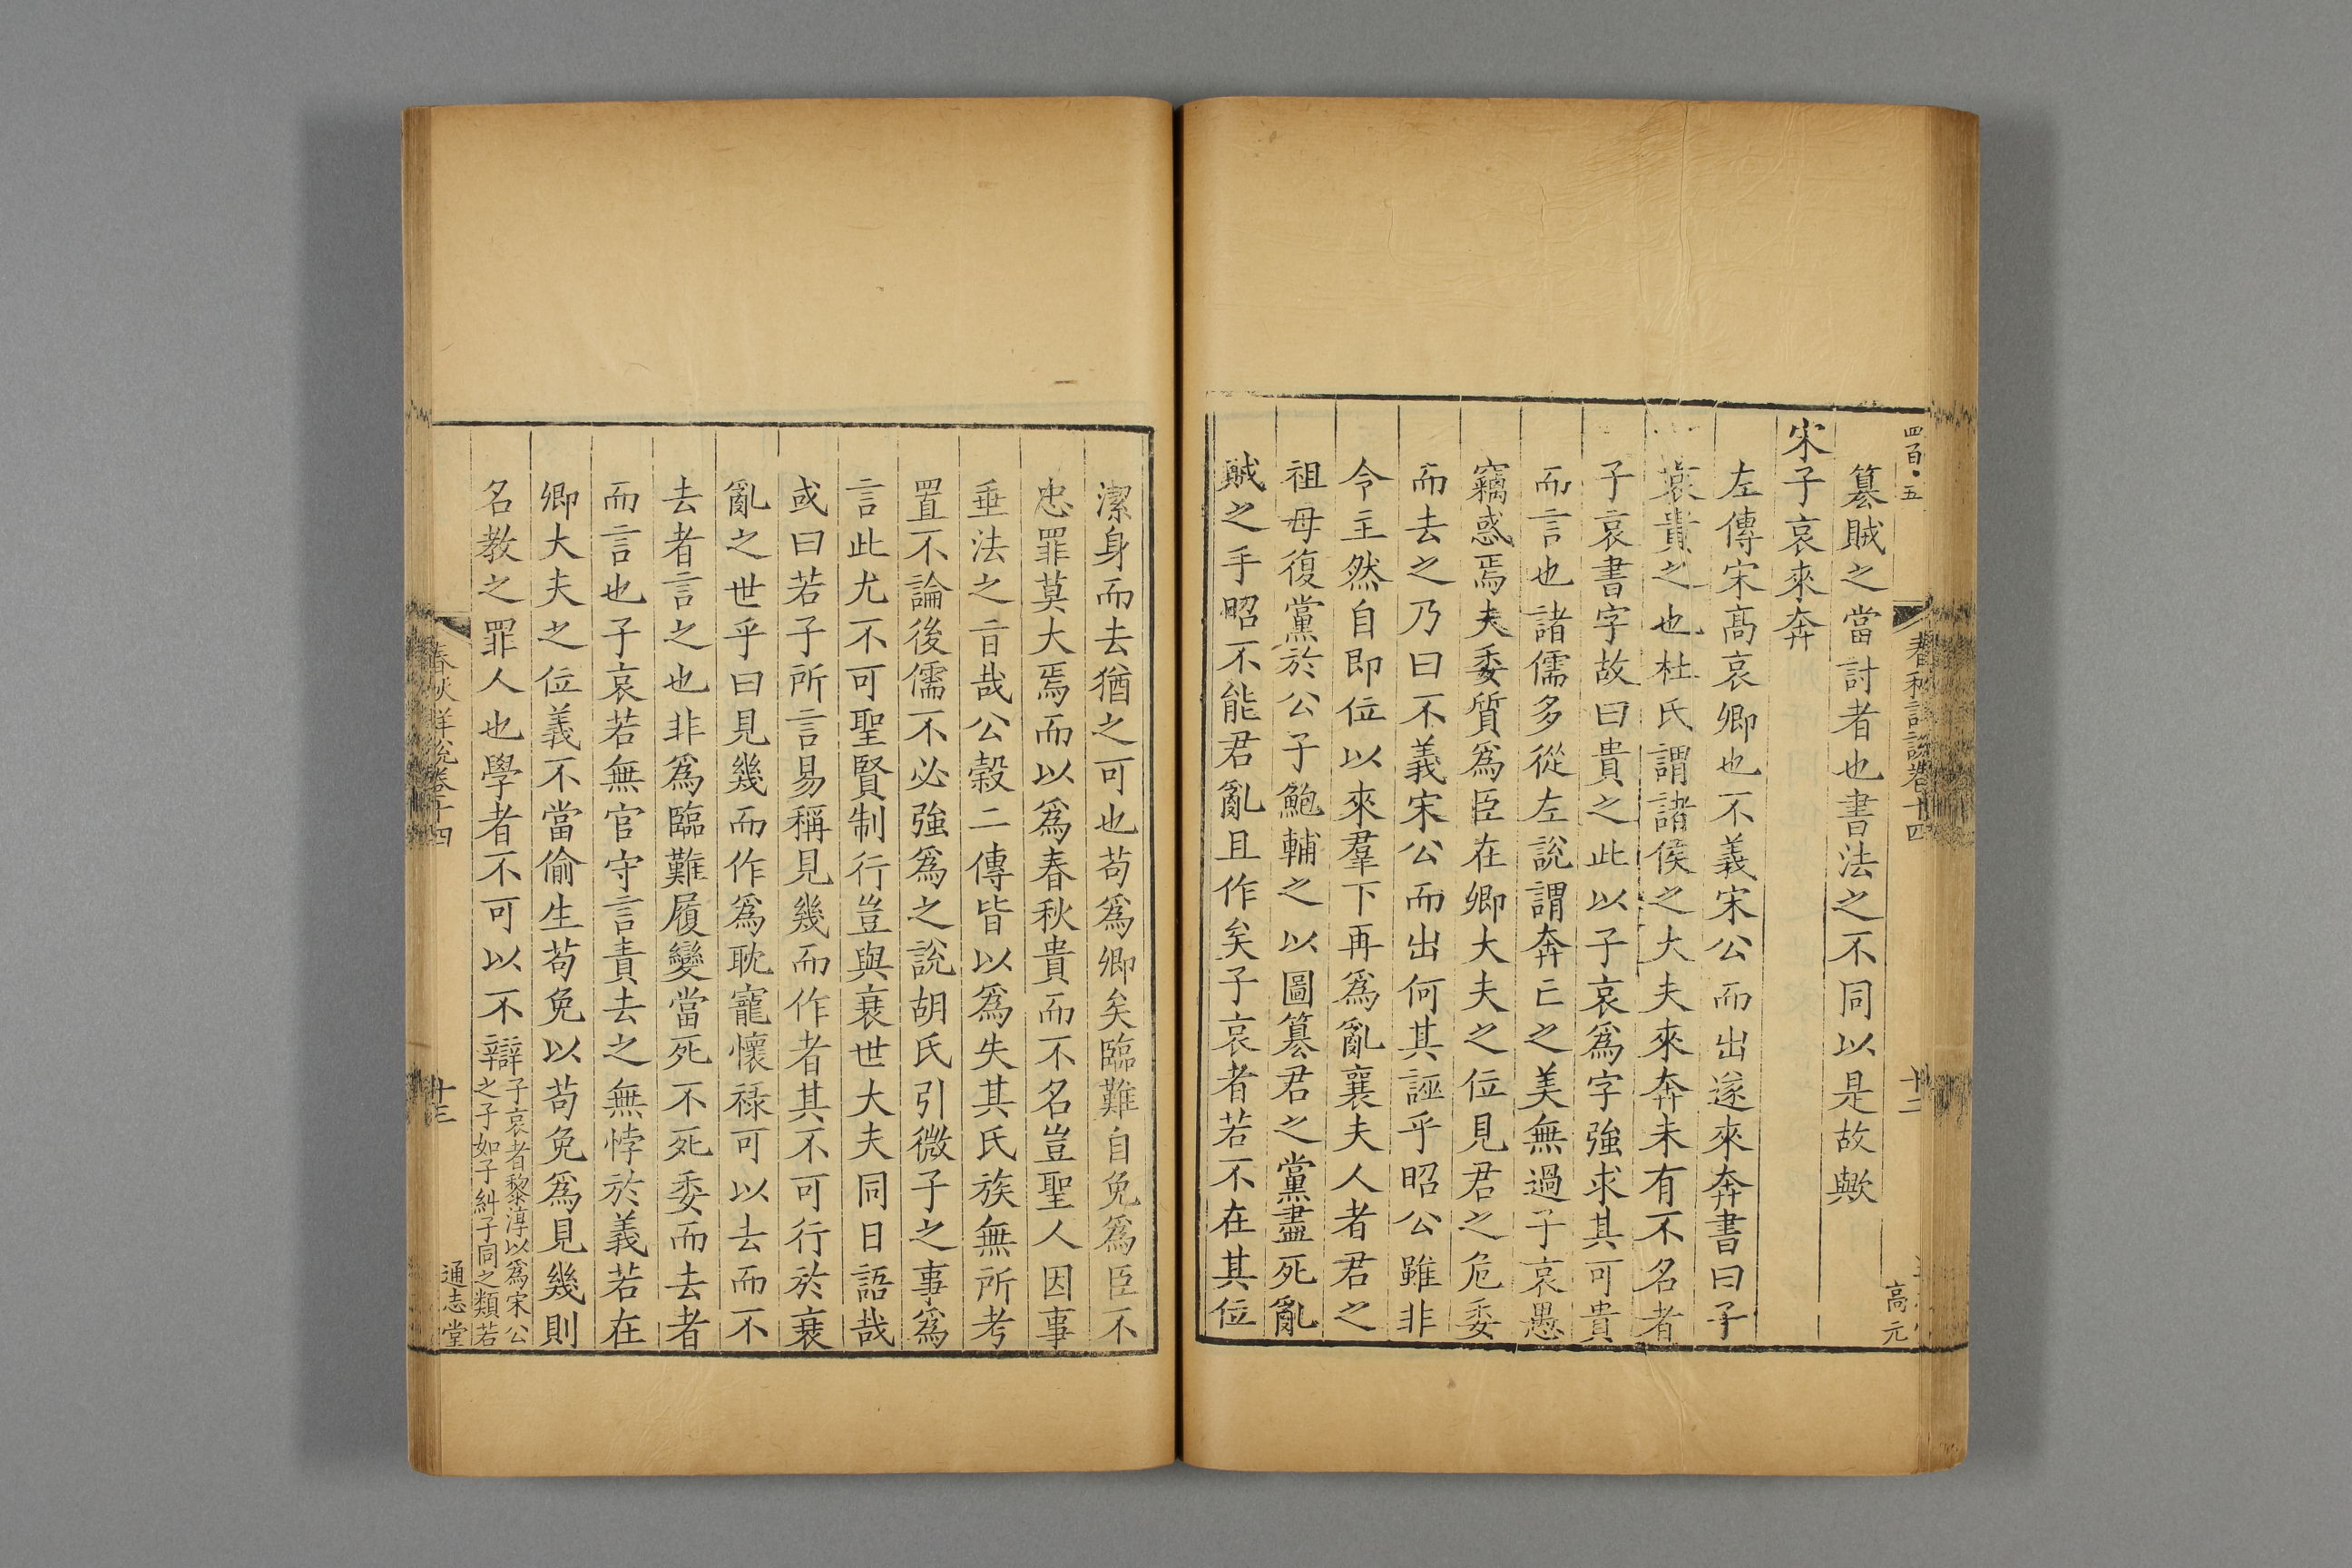 四百·五
春秋詳說卷十四
十二
高元
篡賊之當討者也書法之不同以是故歟
宋子哀來奔
左傳宋高哀卿也不義宋公而出遂來奔書曰子
哀貴之也杜氏謂諸侯之大夫來奔未有不名者
子哀書字故曰貴之此以子哀為字強求其可貴
而言也諸儒多從左說謂奔亡之美無過子哀愚
竊惑焉夫委質爲臣在卿大夫之位見君之危委
而去之乃曰不義宋公而出何其誣乎昭公雖非
令主然自即位以來羣下再爲亂襄夫人者君之
祖母復黨於公子鮑輔之以圖篡君之黨盡死亂
賊之手昭不能君亂且作矣子哀者若不在其位
潔身而去猶之可也苟爲卿矣臨難自免爲臣不
忠罪莫大焉而以爲春秋貴而不名豈聖人因事
垂法之㫖哉公穀二傳皆以爲失其氏族無所考
置不論後儒不必強爲之說胡氏引微子之事爲
言此尤不可聖賢制行豈與衰世大夫同日語哉
或曰若子所言易稱見幾而作者其不可行於衰
亂之世乎曰見幾而作爲耽寵懷祿可以去而不
去者言之也非爲臨難履變當死不死委而去者
而言也子哀若無官守言責去之無悖於義若在
卿大夫之位義不當偷生苟免以苟免爲見幾則
名教之罪人也學者不可以不辯子哀者黎淳以爲宋公
之子如子糾子同之類若
春秋詳說卷十四
十三
通志堂